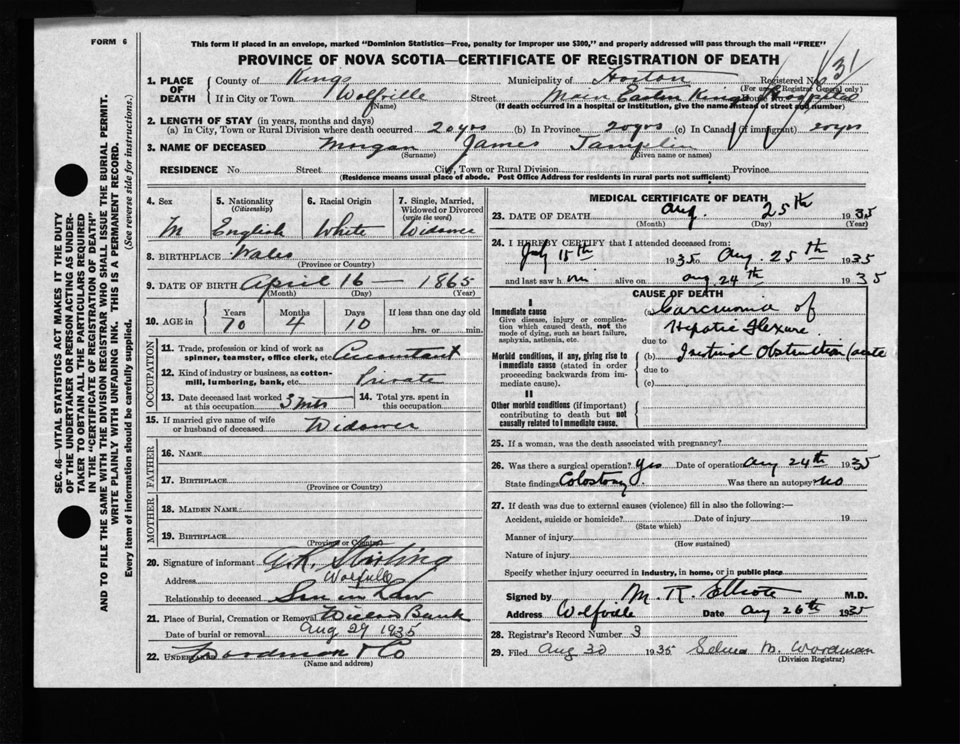 FORM 6
This form if placed in an envelope, marked "Dominion Statistics—Free, penalty for improper use $300," and properly addressed will pass through the mail "FREE"
PROVINCE OF NOVA SCOTIA—CERTIFICATE OF REGISTRATION OF DEATH
1. PLACE OF DEATH County of Kings Municipality of Horton Registered No. 31
(For use of Registrar General only)
If in City or Town Wolfville Street Main Eastern Kings House No. Hospital
(Name) (If death occurred in a hospital or institution, give the name instead of street and number)
2. LENGTH OF STAY (in years, months and days)
(a) In City, Town or Rural Division where death occurred 20 yrs (b) In Province 20 yrs (c) In Canada (if immigrant) 20 yrs
3. NAME OF DECEASED Morgan James Tamplin
(Surname) (Given name or names)
RESIDENCE No. Street City, Town or Rural Division Province
(Residence means usual place of abode. Post Office Address for residents in rural parts not sufficient)
4. Sex M
5. Nationality (Citizenship) English
6. Racial Origin White
7. Single, Married, Widowed or Divorced (write the word) Widower
8. BIRTHPLACE Wales
(Province or Country)
9. DATE OF BIRTH April 16 — 1865
(Month) (Day) (Year)
10. AGE in Years 70 Months 4 Days 10 If less than one day old hrs. or min.
OCCUPATION
11. Trade, profession or kind of work as spinner, teamster, office clerk, etc. Accountant
12. Kind of industry or business, as cotton-mill, lumbering, bank, etc. Private
13. Date deceased last worked at this occupation 3 mths 14. Total yrs. spent in this occupation
15. If married give name of wife or husband of deceased Widower
FATHER
16. NAME
17. BIRTHPLACE
(Province or Country)
MOTHER
18. MAIDEN NAME
19. BIRTHPLACE
(Province or Country)
20. Signature of informant Stirling
Address Wolfville
Relationship to deceased Son in Law
21. Place of Burial, Cremation or Removal Bank
Date of burial or removal Aug 29 1935
22. UNDERTAKER Woodman & Co
(Name and address)
MEDICAL CERTIFICATE OF DEATH
23. DATE OF DEATH Aug. 25th 1935
(Month) (Day) (Year)
24. I HEREBY CERTIFY that I attended deceased from:
July 15th 1935 to Aug. 25th 1935
and last saw him alive on Aug 24th 1935
CAUSE OF DEATH
I
Immediate cause
Give disease, injury or complication which caused death, not the mode of dying, such as heart failure, asphyxia, asthenia, etc.
(a) Carcinoma of Hepatic Flexure
due to
Morbid conditions, if any, giving rise to immediate cause (stated in order proceeding backwards from immediate cause).
(b) Intestinal Obstruction (acute
due to
(c)
II
Other morbid conditions (if important) contributing to death but not causally related to immediate cause.
25. If a woman, was the death associated with pregnancy?
26. Was there a surgical operation? Yes Date of operation Aug 24th 1935
State findings Colostomy Was there an autopsy? No
27. If death was due to external causes (violence) fill in also the following:—
Accident, suicide or homicide? Date of injury 19
(State which)
Manner of injury
(How sustained)
Nature of injury
Specify whether injury occurred in industry, in home, or in public place
Signed by M. R. Elliott M.D.
Address Wolfville Date Aug 26th 1935
28. Registrar's Record Number 3
29. Filed Aug 30 1935 Selena M. Woodman
(Division Registrar)
SEC. 46—VITAL STATISTICS ACT MAKES IT THE DUTY
OF THE UNDERTAKER OR PERSON ACTING AS UNDER-
TAKER TO OBTAIN ALL THE PARTICULARS REQUIRED
IN THE "CERTIFICATE OF REGISTRATION OF DEATH"
AND TO FILE THE SAME WITH THE DIVISION REGISTRAR WHO SHALL ISSUE THE BURIAL PERMIT.
WRITE PLAINLY WITH UNFADING INK. THIS IS A PERMANENT RECORD.
Every item of information should be carefully supplied. (See reverse side for instructions.)